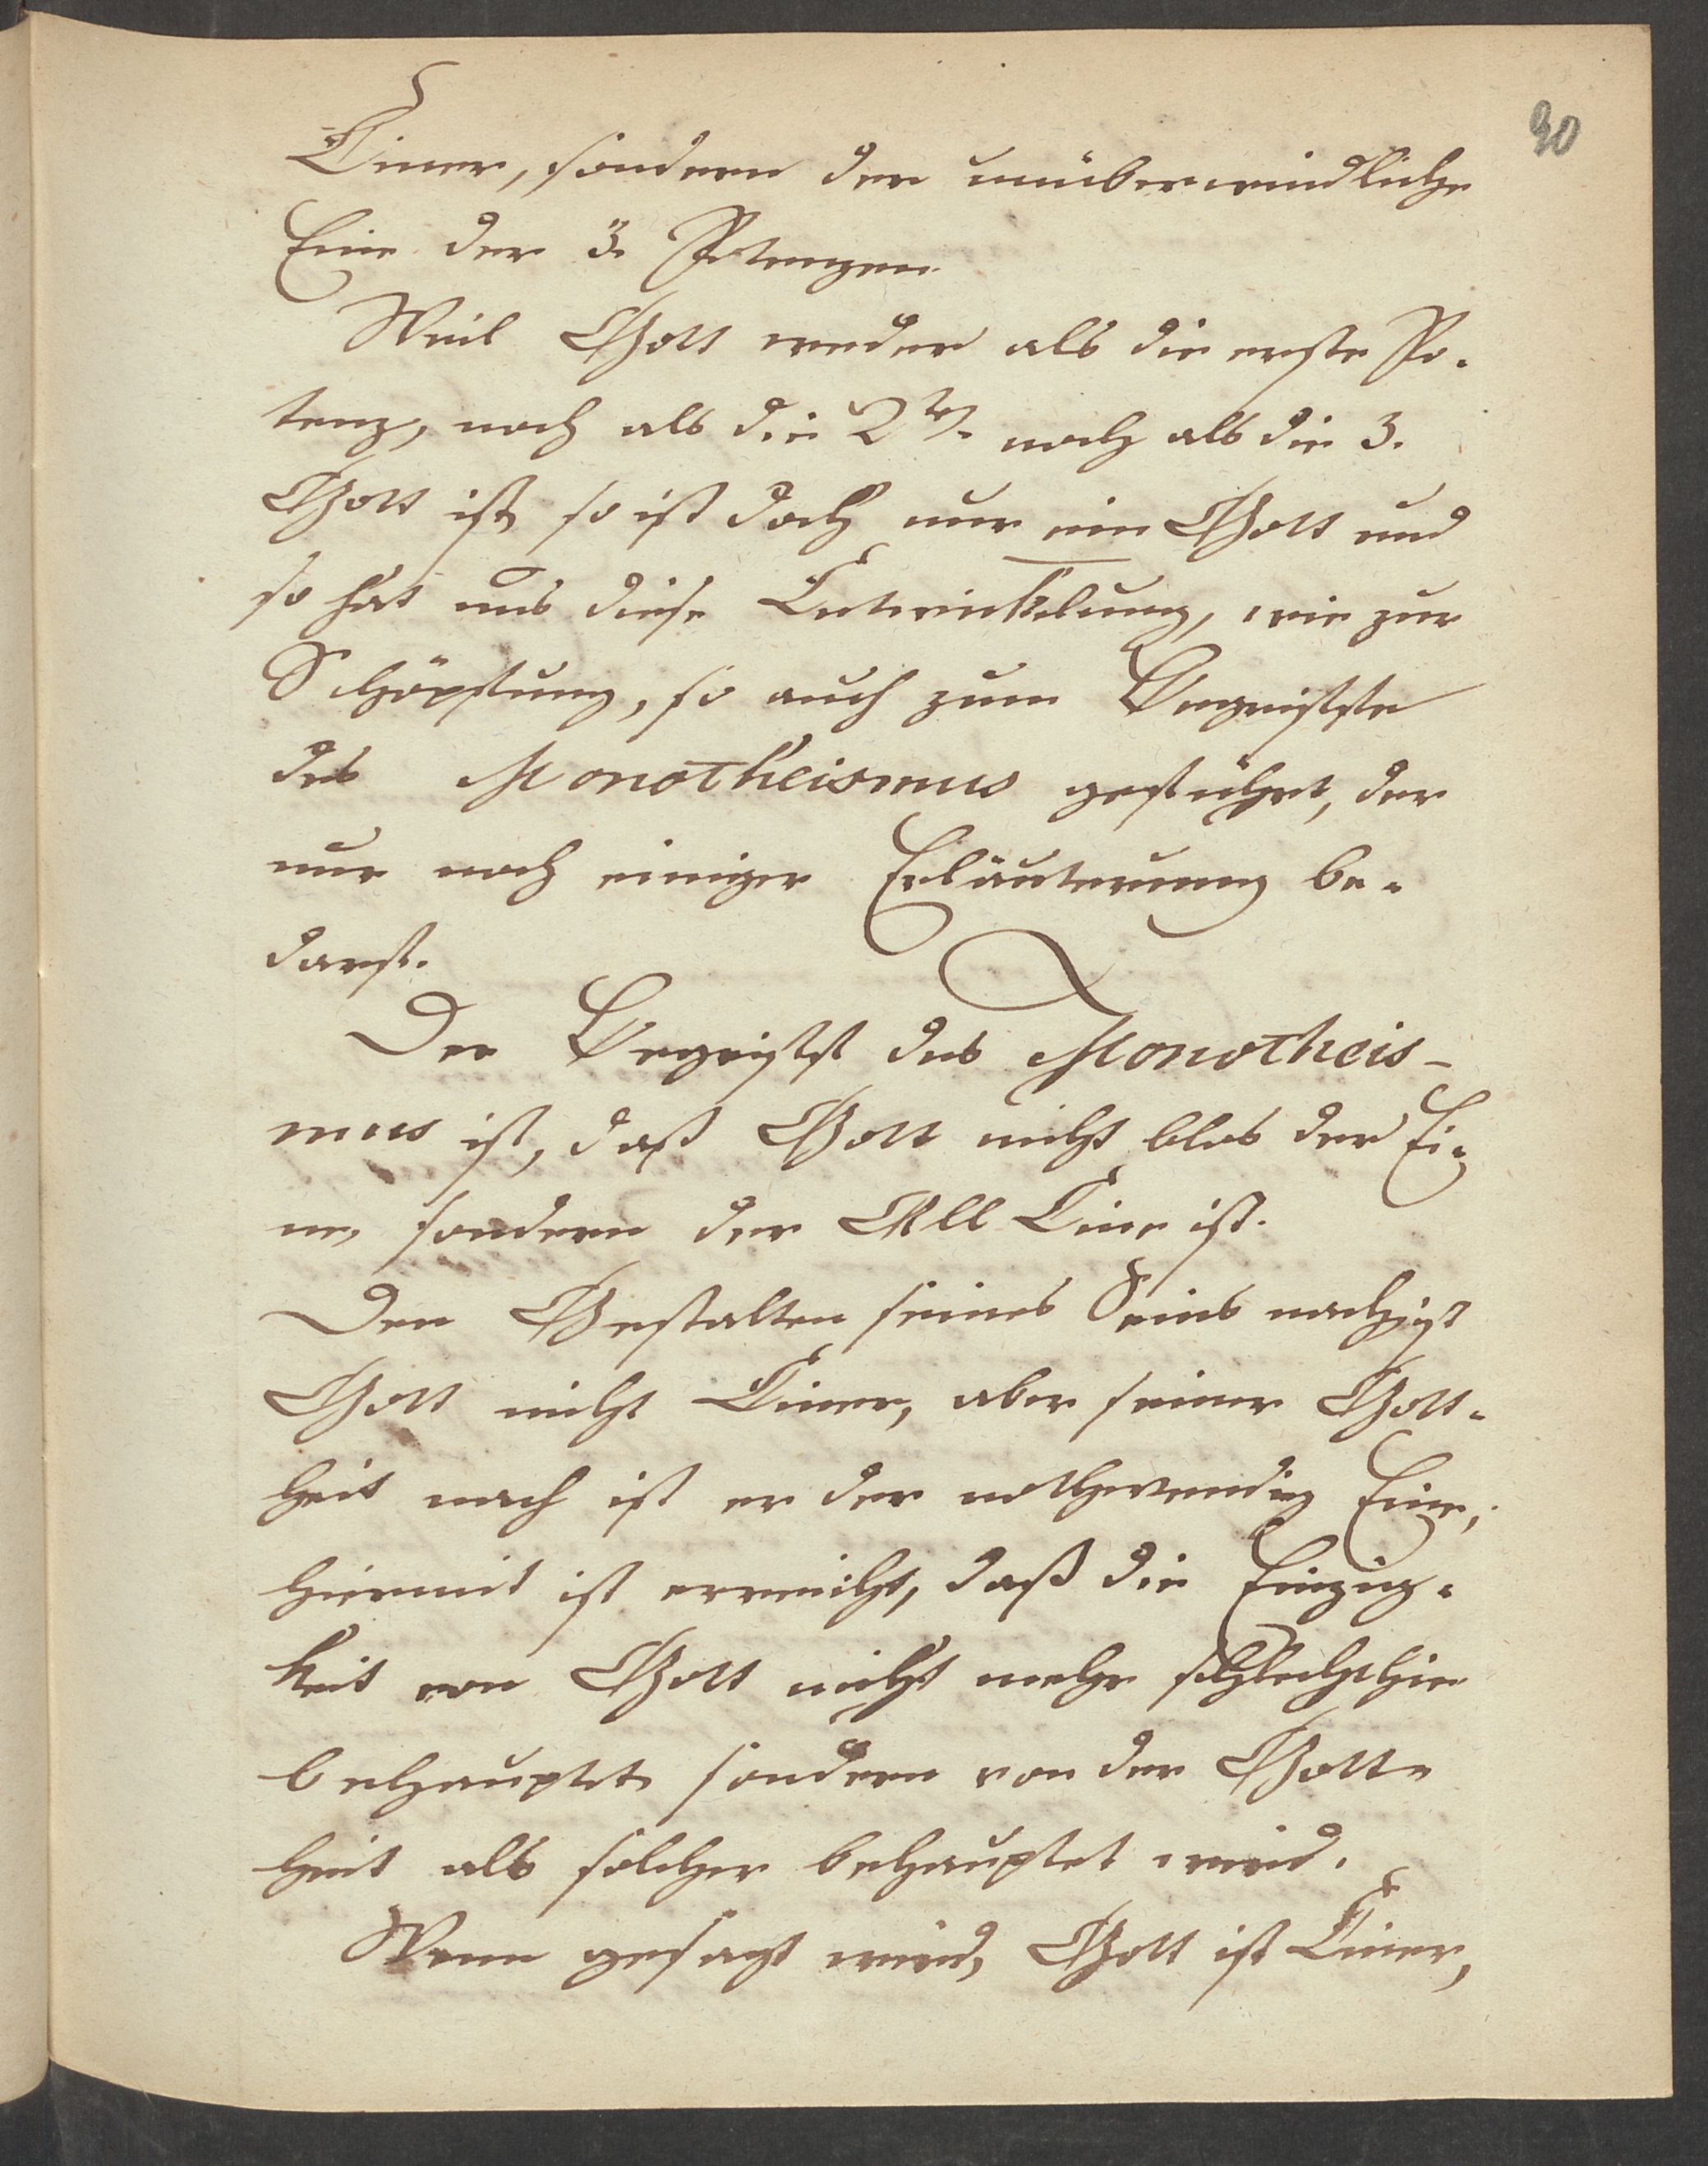 30
Einer, sondern der unüberwindliche
Eine der 3. Potenzen.
Weil Gott weder als die erste Po-
tenz, noch als die 2te noch als die 3.
Gott ist, so ist doch nur ein Gott und
so hat uns diese Entwickelung, wie zur
Schöpfung, so auch zum Begriffe
des Monotheismus geführt, der
nur noch einiger Erläuterung be-
darf.
Der Begriff des Monotheis-
mus ist, daß Gott nicht blos der Ei-
ne, sondern der All Eine ist.
Den Gestalten seines Seins nach ist
Gott nicht Einer, aber seiner Gott-
heit nach ist er der nothwendig Eine,
hiermit ist erreicht, daß die Einzig-
keit von Gott nicht mehr schlechthin
behauptet, sondern von der Gott-
heit als solcher behauptet wird.
Wenn gesagt wird, Gott ist Einer,